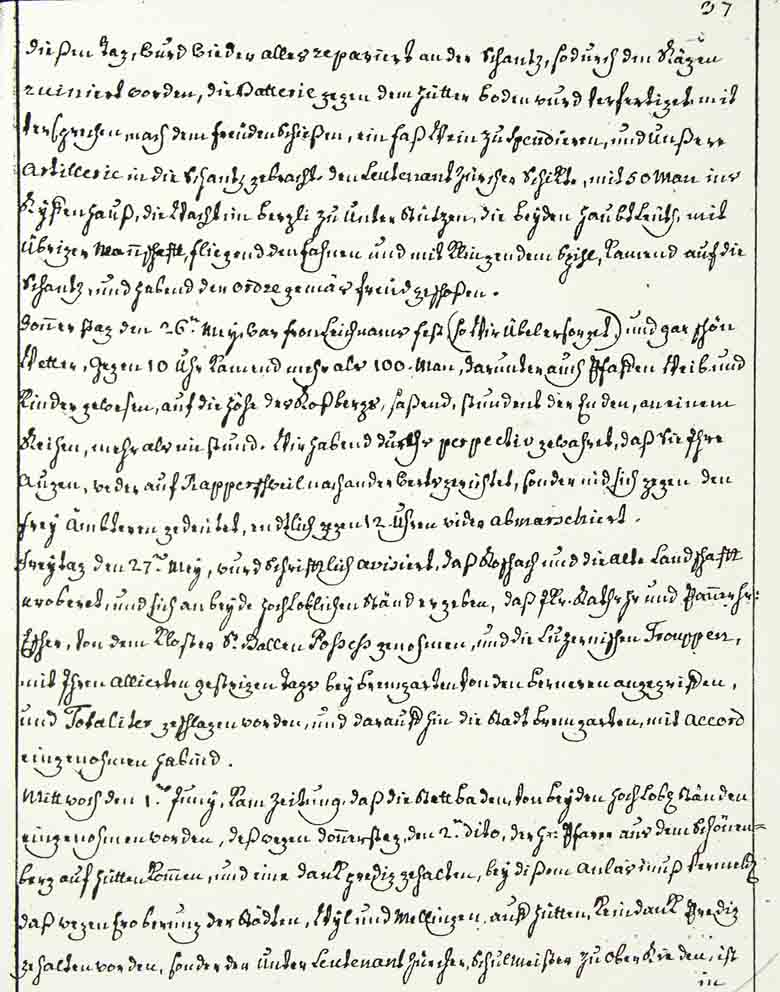 37
dießen Tag, wurd wieder alles repariert an der Schantz, so durch den Rägen
ruiniert worden, die Batterie gegen dem Hütter boden wurd verfertiget, mit
versprechen, nach dem freüdenschießen, ein faß Wein zu spendieren, und unßere
Artillerie in die Schantz gebracht, den Leutenant Zürcher Schikte, mit 50 Man ins
Ryffenhauß, die Wacht im bergli zu unter Stützen, die beyden Haubtleüth, mit
übriger Mannschafft, fliegend den fahnen und mit Klingendem Spihl, Kamend auf die
Schantz, und habend der ordre gemäs freüd geschoßen.
Donnerstag den 26.n Mey, war fronleichnams fest (so Wir übel ersorget) und gar schön
Wetter, gegen 10 Uhr Kamend mehr als 100. Man, darunter auch Pfaffen Weib und
Kinder gewesen, auf die Höhe des Roßbergs, saßend, stundent der Enden, an einem
Reihen, mehr als ein stund. Wir habend durchs perpectiv gewahret, daß Sie Ihre
Augen, weder auf Rapperschweil nach anderwerts gerichtet, sonder nid sich gegen den
frey Ämbteren gedeütet, endtlich gegen 12. Uhren wider abmarschiert.
freytag den 27.n Mey, wurd schrifftlich avisiert, daß Roschach und die alte Landschafft
eroberet, und sich an beyde hochloblichen Ständ ergeben, daß Hr. Rathshr und Pannerhr:
Escher, von dem Kloster St. Gallen Possess genohmen, und die Luzernischen Trouppen,
mit Ihren Allierten gestrigen Tags bey bremgarten von den berneren angegriffen,
und Totaliter geschlagen worden, und darauf hin die Stadt bremgarten, mit Accord
eingenohmen habind.
Mittwoch den 1.ten Juny, Kam Zeitung, daß die Stett baden, von beyden Hochlobl Ständen
eingenohmen worden, deßwegen donnerstag, den 2.n dito, der Hr: Pfarer aus dem Schönen=
berg auf Hütten kommen, und eine dankpredig gehalten, bey dißem Anlas muß vermeldt
daß wegen Eroberung der Städten, Wyl und Mellingen auf Hütten, Kein dank Predig
gehalten worden, sonder der unter Leutenant Zürcher, Schulmeister zu Ober Rieden, ist
in